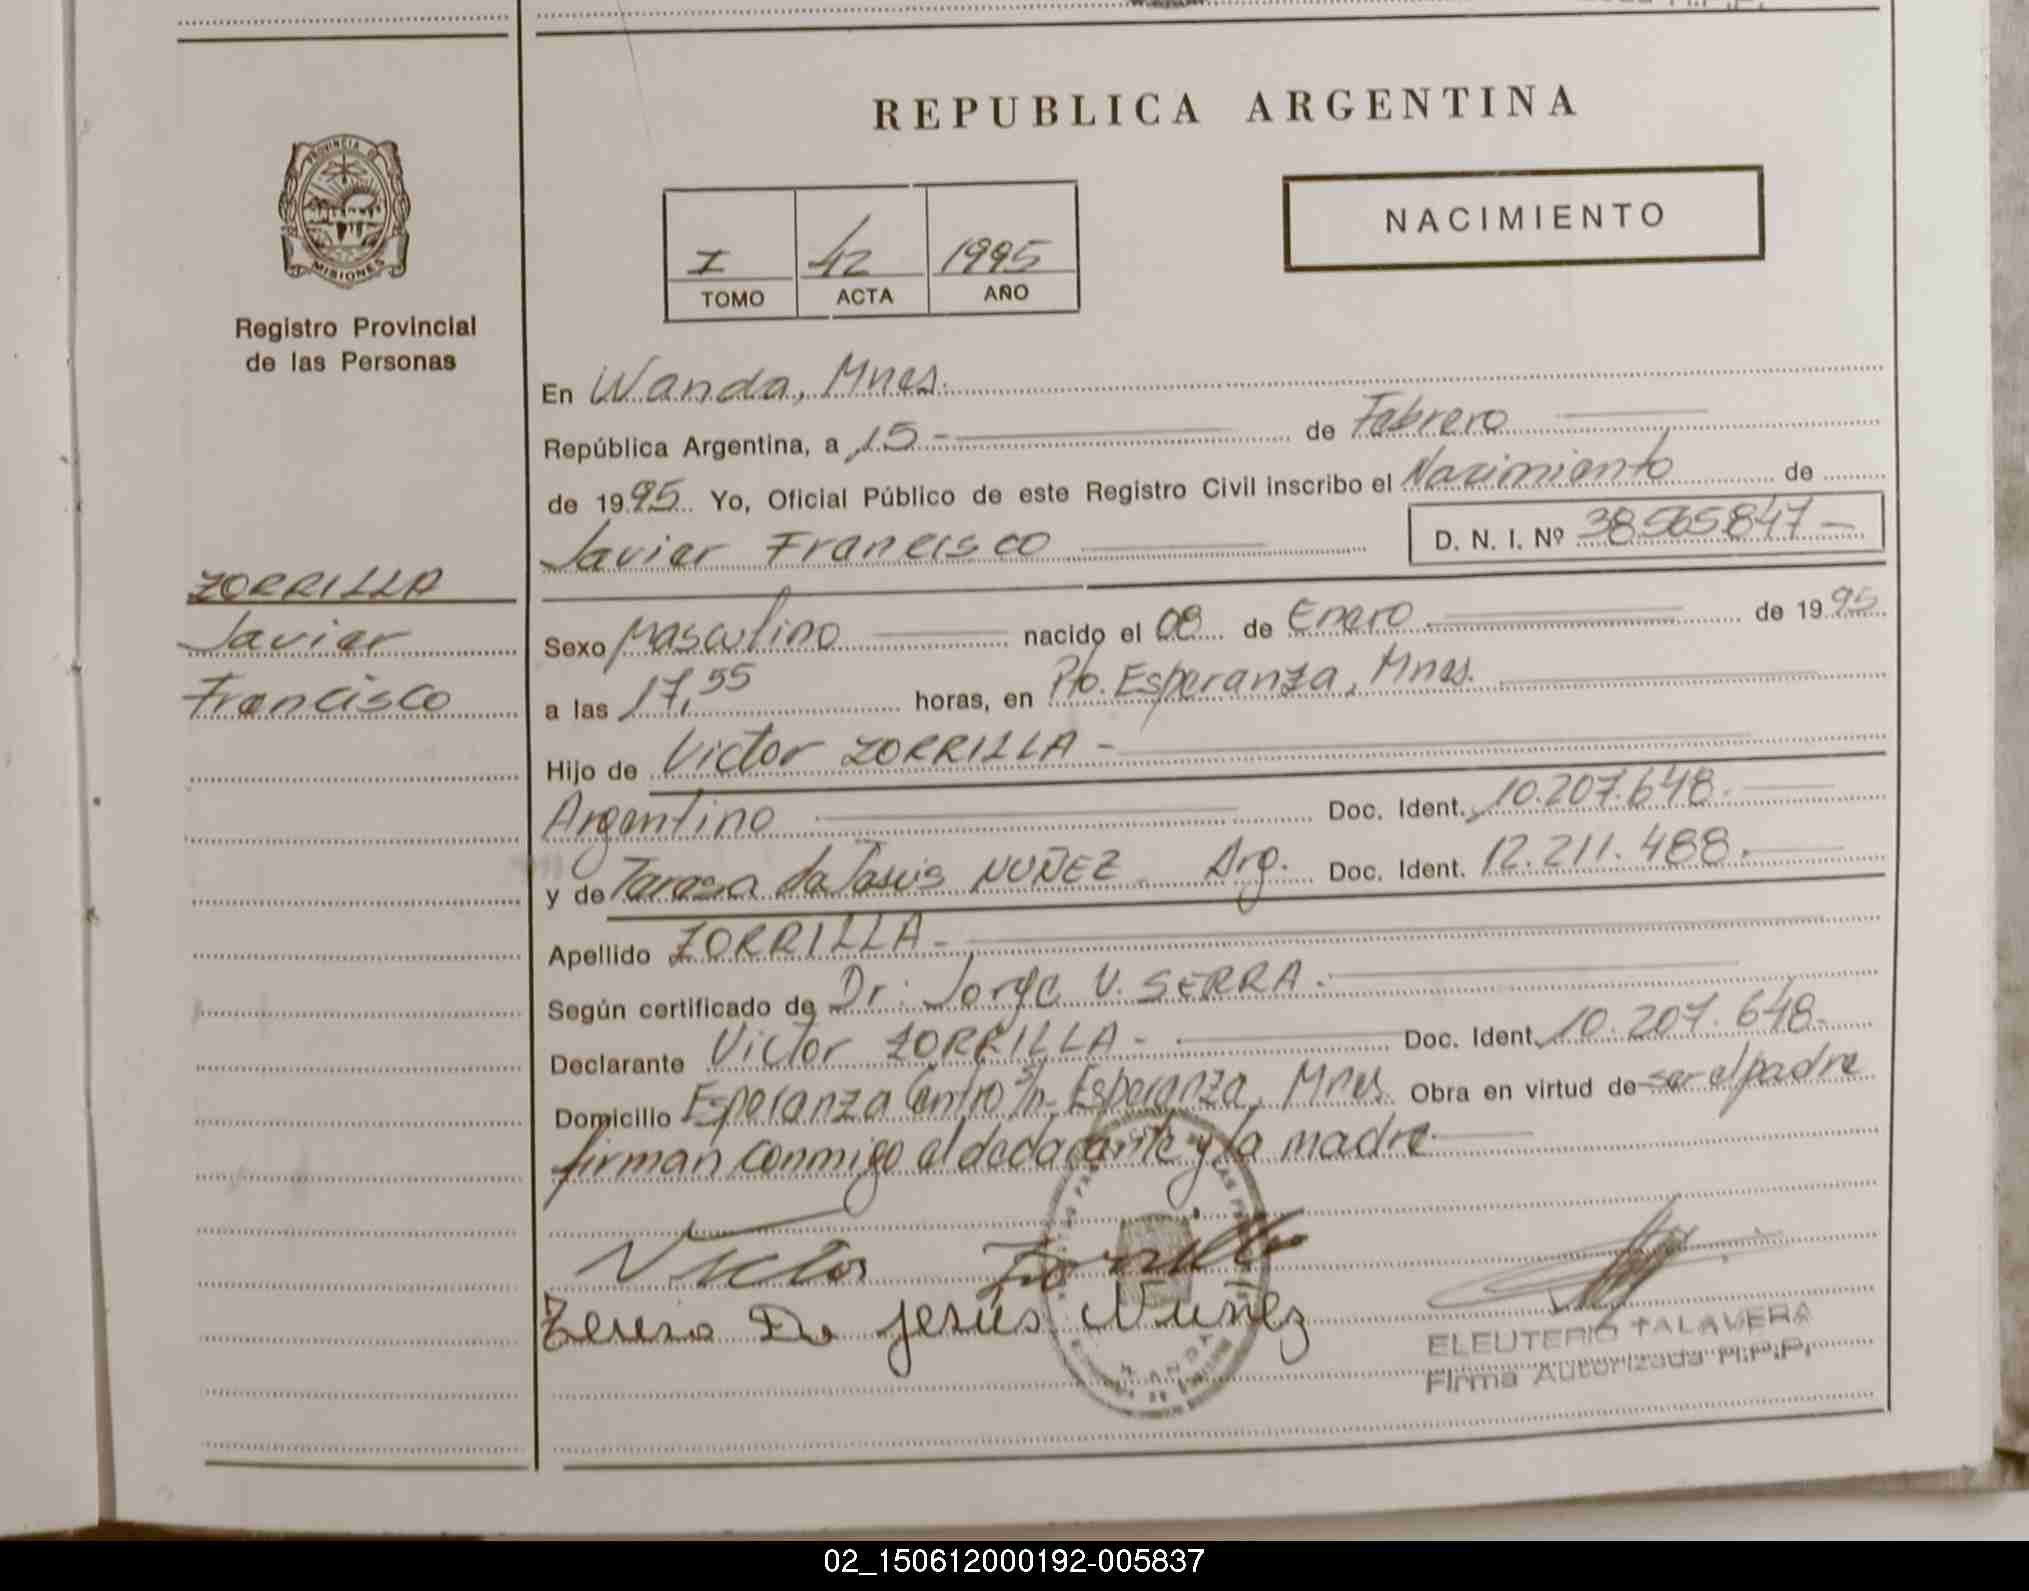 REPUBLICA ARGENTINA
PROVINCIA DE
MISIONES
Registro Provincial
de las Personas
NACIMIENTO
I 42 1995
TOMO ACTA AÑO
En Wanda, Mnes.
República Argentina, a 15 - de Febrero
de 1995 Yo, Oficial Público de este Registro Civil inscribo el Nacimiento de
Javier Francisco D. N. I. Nº 38.565.847 -
ZORRILLA
Javier
Francisco
Sexo Masculino nacido el 08 de Enero de 1995
a las 17,55 horas, en Pto. Esperanza, Mnes.
Hijo de Victor ZORRILLA -
Argentino Doc. Ident. 10.207.648.
y de Teresa de Jesús NUÑEZ Arg. Doc. Ident. 12.211.488.
Apellido ZORRILLA -
Según certificado de Dr. Jorge V. SERRA.
Declarante Victor ZORRILLA - Doc. Ident. 10.207.648.
Domicilio Esperanza Centro s/n - Esperanza, Mnes. Obra en virtud de ser el padre
firman conmigo el declarante y la madre
Victor Zorrilla
Teresa De Jesús Nuñez
WANDA
ELEUTERIO TALAVERA
Firma Autorizada R.P.P.
02_150612000192-005837